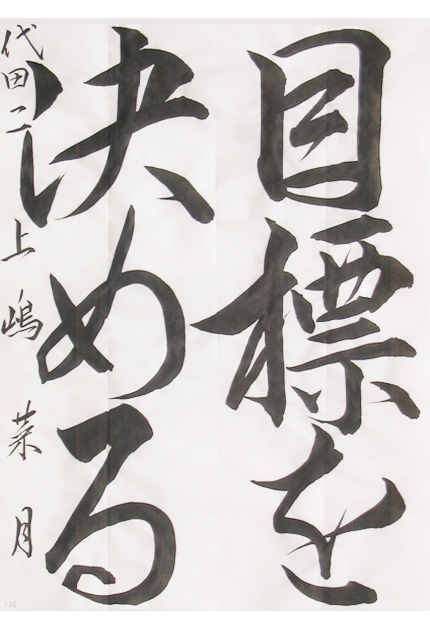 目標を
決める
代田二 上嶋菜月